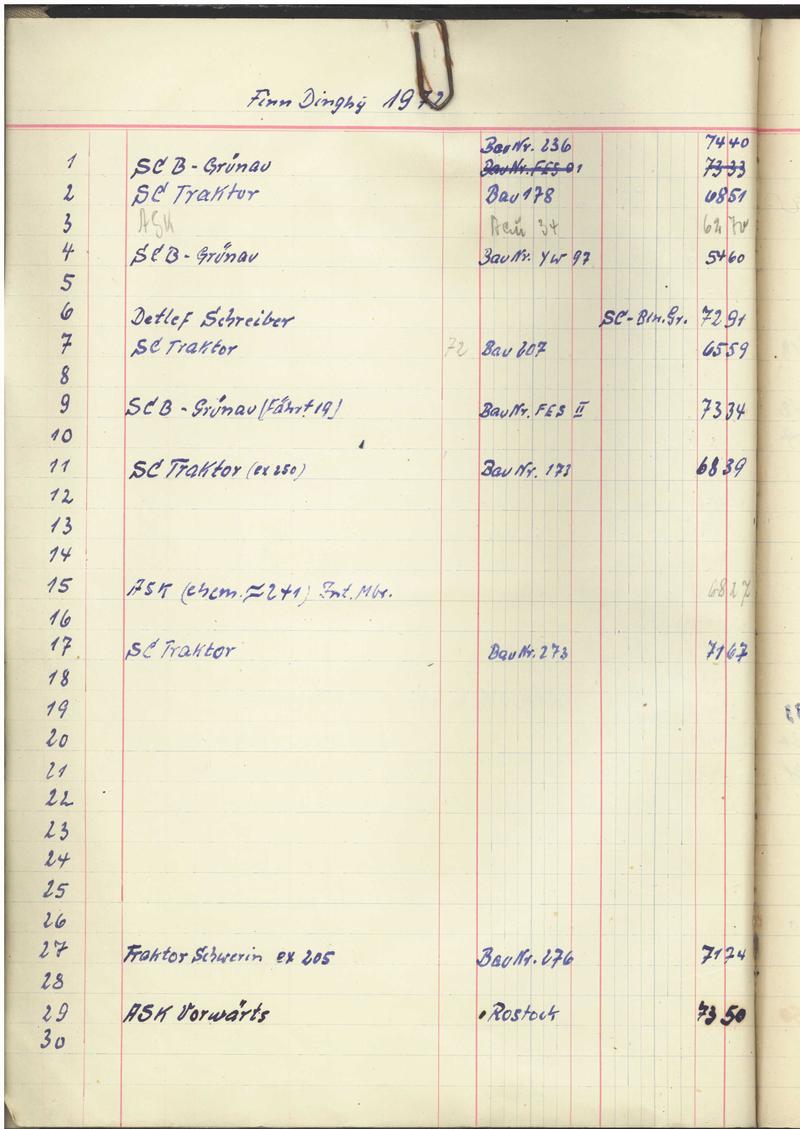 Finn Dinghy 1972
Bau Nr. 236 7440
1 SC B - Grünau Bau Nr. FES 01 7333
2 SC Traktor Bau 178 6851
3 ASK 34 6270
4 SC B - Grünau Bau Nr. YW 97 5460
5
6 Detlef Schreiber SC-Bln.Gr. 7291
7 SC Traktor 72 Bau 207 6559
8
9 SC B - Grünau (Fährt 19) Bau Nr. FES II 7334
10
11 SC Traktor (ex 250) Bau Nr. 173 6839
12
13
14
15 ASK (ehem. 241) 6827
16
17 SC Traktor Bau Nr. 273 7167
18
19
20
21
22
23
24
25
26
27 Traktor Schwerin ex 205 Bau Nr. 276 7174
28
29 ASK Vorwärts Rostock 7350
30